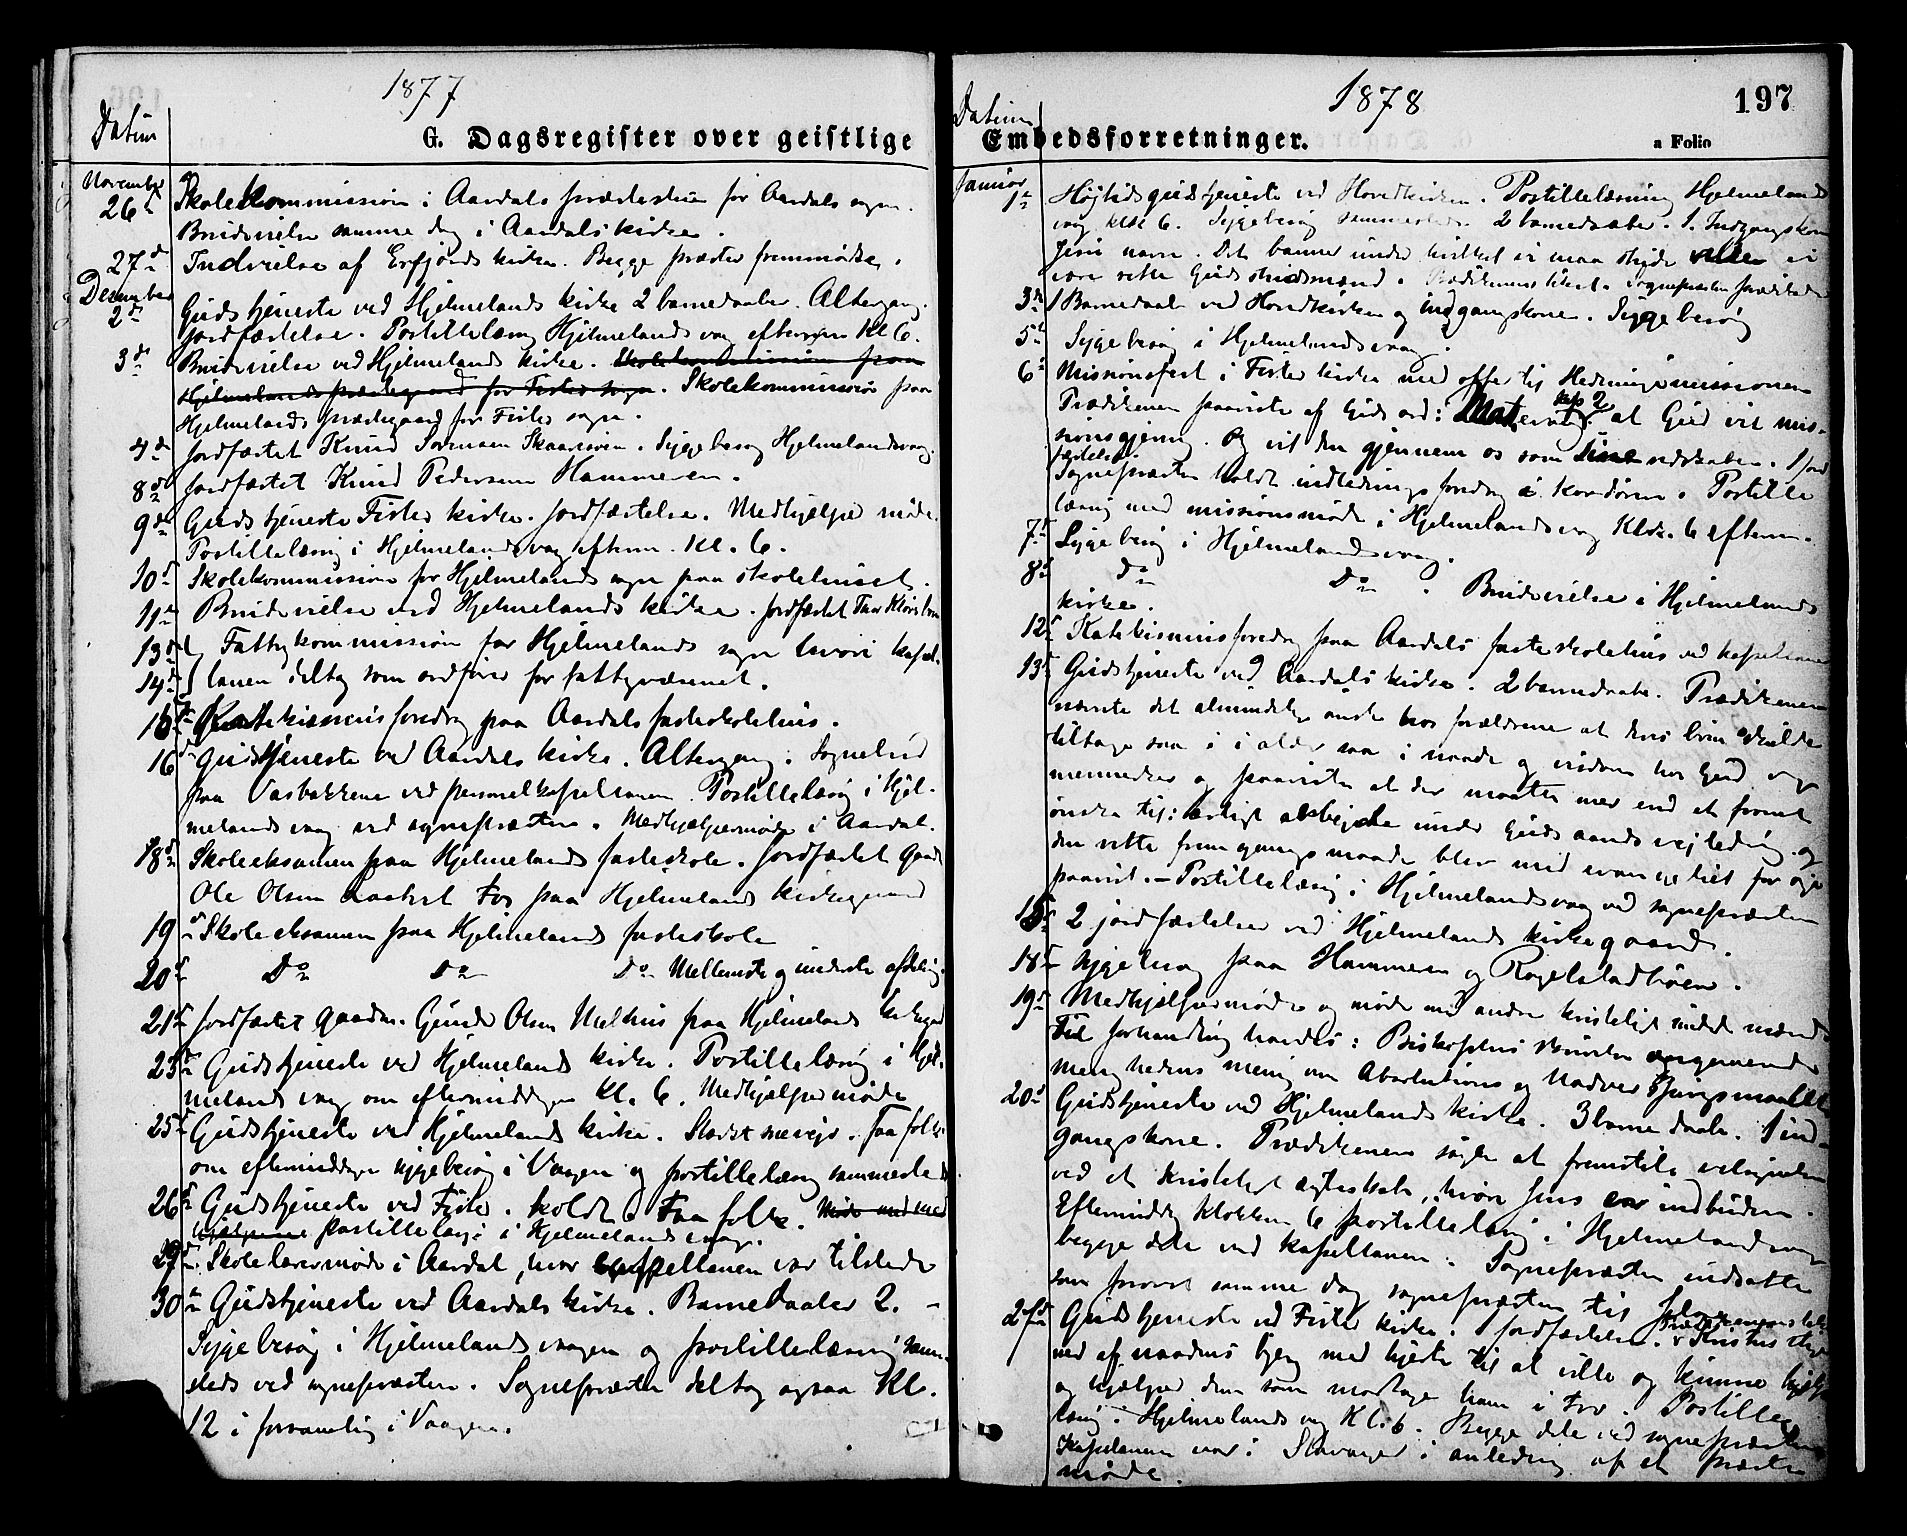 1877
Datum
G. Dagsregister over geistlige
November
26d Skolekommission i Aardals prædestue for Aardals sogn.
Brudevielse samme dag i Aardalskirke.
27de Indvielse af Erfjords kirke. Begge præster fremmødte.
Desember
2de Gudstjeneste ved Hjelmelands kirke 2 barnedaaber. Altergang.
Jordfæstelse. Postillelæsning Hjelmelandsvaag efterm Kl 6.
3de Brudevielse ved Hjelmelands kirke. Skolekommission paa
Hjelmelands præstegaard for Fister sogn. Skolekommission paa
Hjelmelands præstegaard for Fister sogn.
4de Jordfæstet Knud Sygebesøg Hjelmelandsvaag.
8de Jordfæstet Knud Pedersen Hammeren.
9de Gudstjeneste Fister kirke. Jordfæstelse. Medhjelper møde.
Postillelæsning i Hjelmelandsvaag efterm. Kl. 6.
10d Skolekommission for Hjelmelands sogn paa skolehuset.
11te Brudevielse ved Hjelmelands kirke. Jordfæstet
13de Fattigkommission for Hjelmelands sogn hvori kapel-
14de lanen deltog som ordfører for fattigvæsenet.
15 Katekismusforedrag paa Aardals fasteskolehus.
16d Gudstjeneste ved Aardals kirke. Altergang. Sognebud
paa Vasbakkene ved personelkapellanen. Postillelæsning i Hjel-
melandsvaag ved sognepræsten. Medhjælpermøde i Aardal.
18d Skoleeksamen paa Hjelmelands fasteskole. Jordfæstet Gaard
Ole Olsen paa Hjelmelands kirkegaard
19d Skoleeksamen paa Hjelmelands fasteskole
20d Do Do Do Mellemste og underste afdeling.
21d Jordfæstet gaardm. Gunder Olsen Melhus paa Hjelmelands kirkegaard
23d Gudstjeneste ved Hjelmelands kirke. Postillelæsning i Hjel-
melandsvaag om eftermiddagen Kl. 6. Medhjælper møde
25d Gudstjeneste ved Hjelmelands kirke. Faa folk.
om eftermiddagen sygebesøg i Vaagen og postillelæsning sammesteds
26d Gudstjeneste ved Fister. koldt. Faa folk. Møde med med
hjælperne postillelæsn. i Hjelmelandsvaag.
29d Skolelærermøde i Aardal, hvor kapellanen var tilstede
30d Gudstjeneste ved Aardals kirke. Barnedaaber 2. -
Sygebesøg i Hjelmelandsvaagen og postillelæsning samme-
steds ved sognepræsten. Sognepræsten deltog ogsaa Kl.
12 i forsamling i Vaagen.
1878
197
Datum
Embedsforretninger.
a Folio
Januar
1te Højtidsgudstjeneste ved Hovedkirken. Postillelæsning Hjelmelands
vaag klok 6. Sygebesøg sammesteds. 2 barnedaaber. 1. Indgangskone
Jesu navn. Det banner under hvilket vi maa stride eller vi
ere rette Guds stridsmænd. Sognepræsten prædikede
3d 1 Barnedaab ved Hovedkirken og indgangskone. Sygebesøg
5d Sygebesøg i Hjelmelandsvaag.
6d Missionsfest i Fister kirke med offer til Hedningemissionen
Prædikenen paaviste af Guds ord: kap 2 at Gud vil mis-
sionsgjerning. Og vil den gjennem os som sine redskaber. 1 jord
fæstelse.
Sognepræsten holdt indledningsforedrag i kordøren. Postille
læsning med missionsmøde i Hjelmelandsvaag Klok. 6 efterm.
7d Sygebesøg i Hjelmelandsvaag.
8d Do Do. Brudevielse i Hjelmelands
kirke.
12d Katekismusforedrag paa Aardals fasteskolehus ved kapellanen
13d Gudstjeneste ved Aardals kirke. 2 barnedaaber. Prædikenen
nævnte det almindelige ønske hos forældrene at deres børn skulde
tiltage saa i alder saa i naade og visdom hos Gud og
mennesker og paaviste at der maatte mer end et fromt
ønske til: ærligt arbejde under Guds aands vejledning. og
den rette fremgangsmaade blev med evangeliet for øje
paavist. — Postillelæsning i Hjelmelandsvaag ved sognepræsten
15d 2 jordfæstelser ved Hjelmelands kirkegaard.
18d Sygebesøg paa Hammeren og
19d Medhjælpermøde og møde med andre kristeligsindede mænd
Til forhandling havdes: Biskoppens skrivelse angaaende
menighedens mening om Absolutions og Nadverspørgsmaalet
20d Gudstjeneste ved Hjelmelands kirke. 3 barnedaab. 1 ind-
gangskone. Prædikenen søgte at fremstille velsignelsen
ved et kristeligt ægteskab, hvor Jesus er indbuden.
Eftermiddag klokken 6 postillelæsning i Hjelmelandsvaag
begge dele ved kapellanen. Sognepræsten indsatte
som provst samme dag sognepræsten til
27d Gudstjeneste ved Fister kirke. Jordfæstelse. Kristus stiger
ned af naadens bjerg med hjerte til at ville og kunne hjælpe
og hjælper dem som modtage ham i Tro. Postille
læsning i Hjelmelandsvaag Kl. 6. Begge dele ved sognepræsten
Kapelanen var i Stavanger i anledning af et præste
møde.